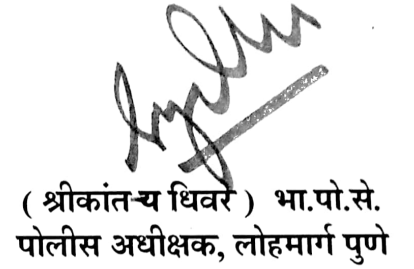 ( श्रीकांत य धिवरे ) भा.पो.से.
पोलीस अधीक्षक, लोहमार्ग पुणे